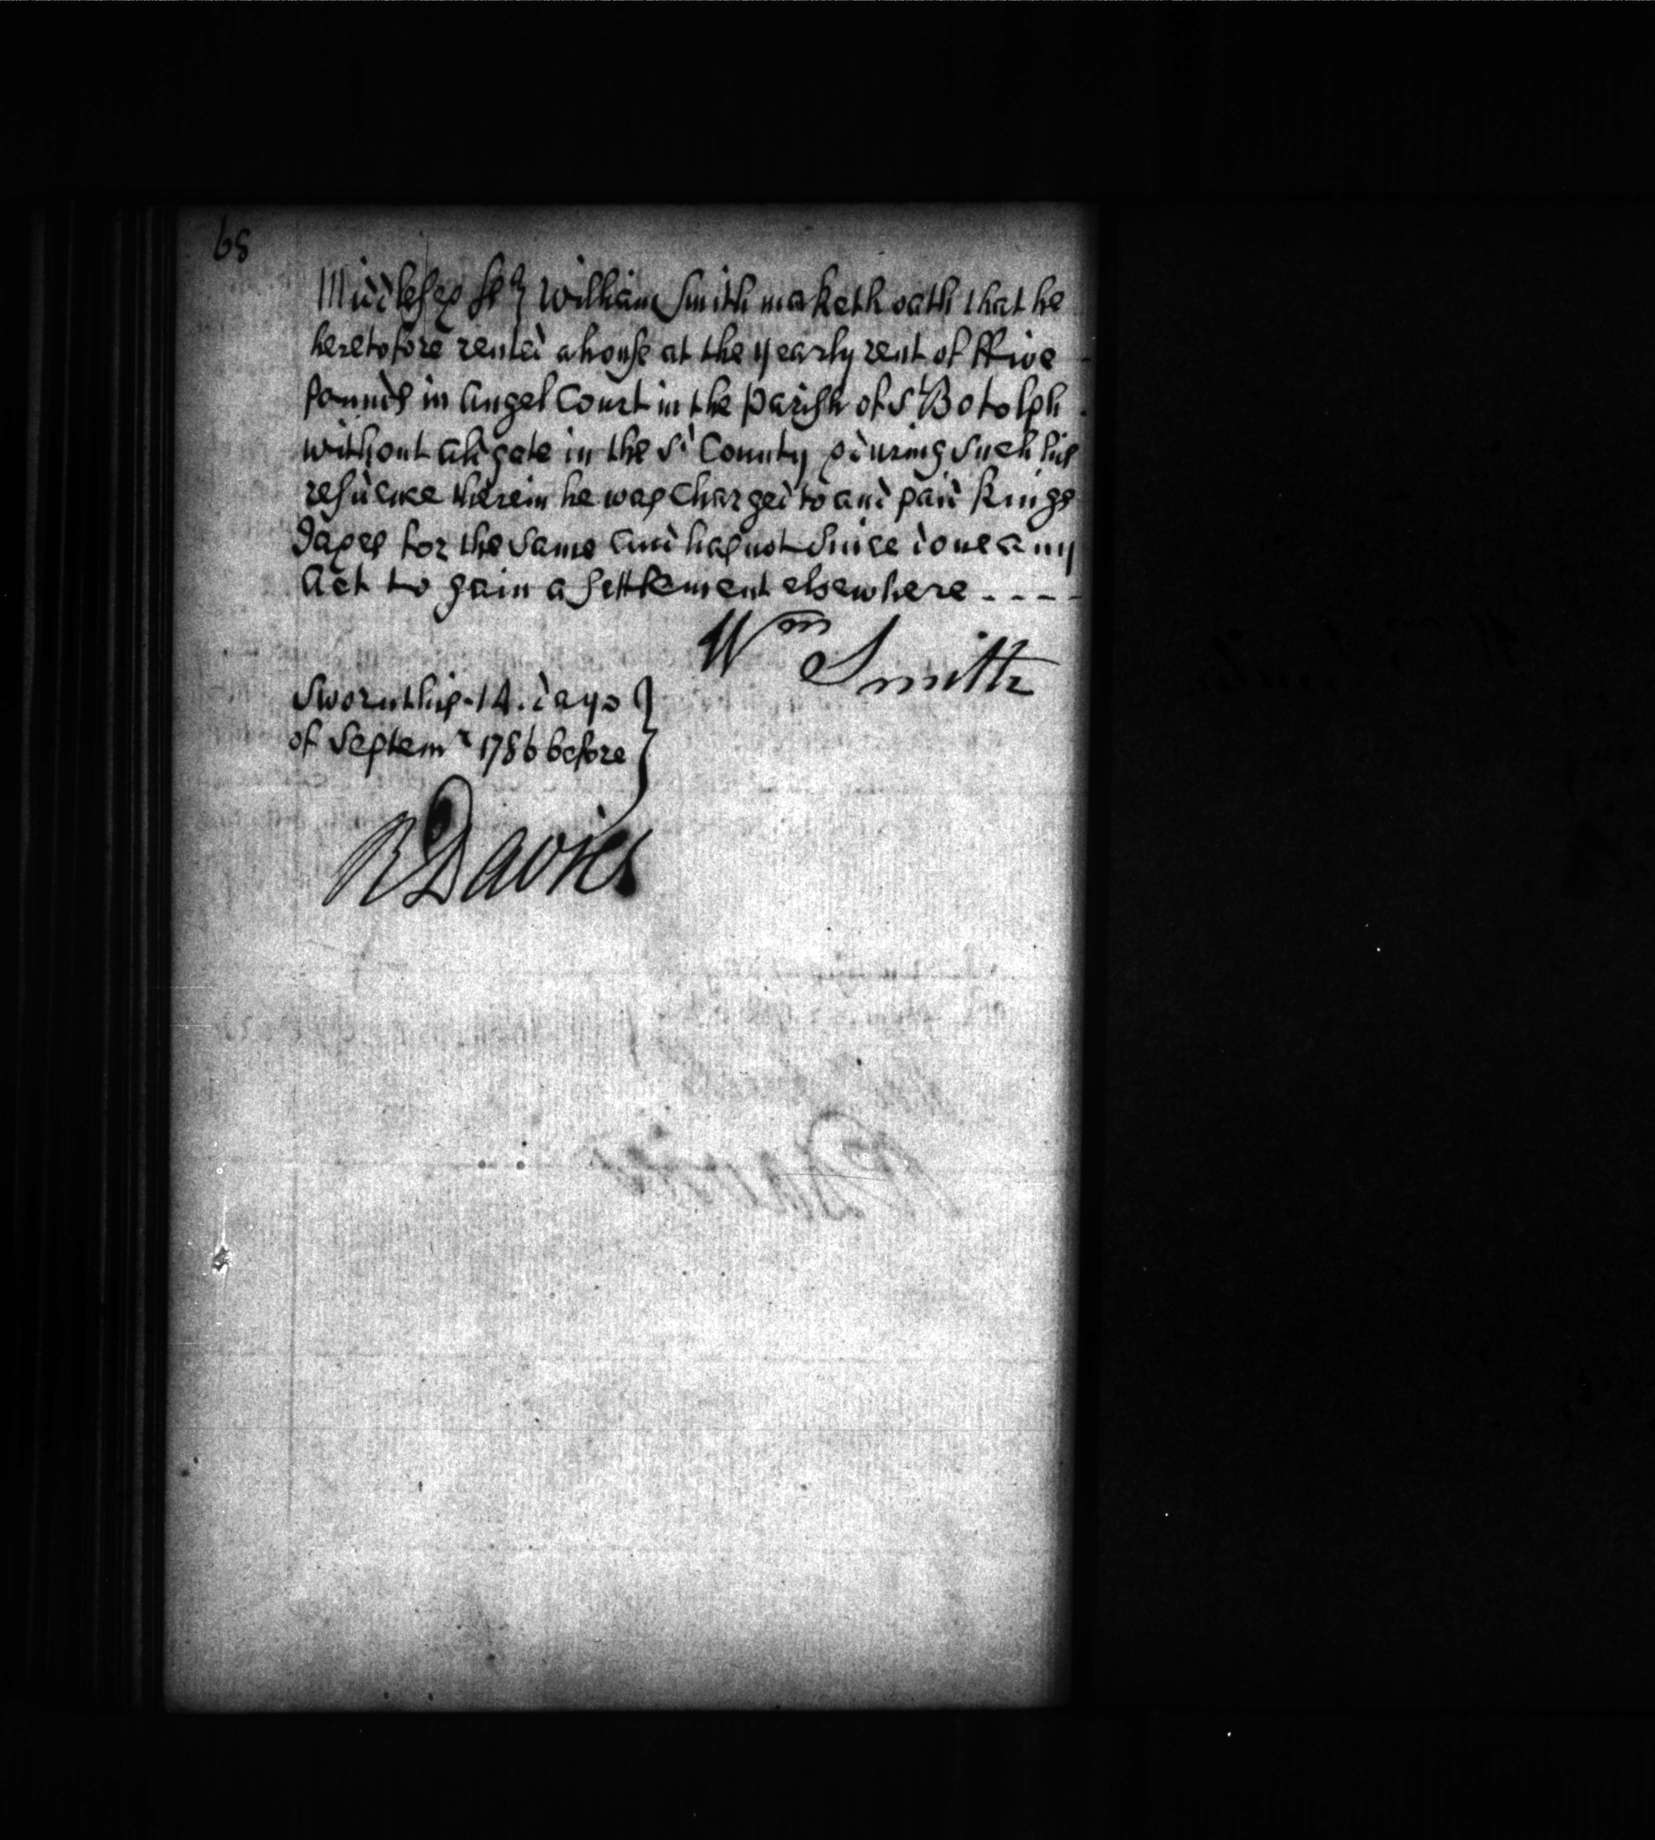 68
Middlesex ss } William Smith maketh oath that he
heretofore rented a house at the yearly rent of ffive
pounds in Angel Court in the parish of St Botolph
without Aldgate in the sd County & during such his
residence therein he was Charged to and paid Kings
Taxes for the same and has not since done any
Act to gain a Settlement elsewhere - - - -
Wm Smith
Sworn this 14. day
of Septemr 1786 before }
R Davies